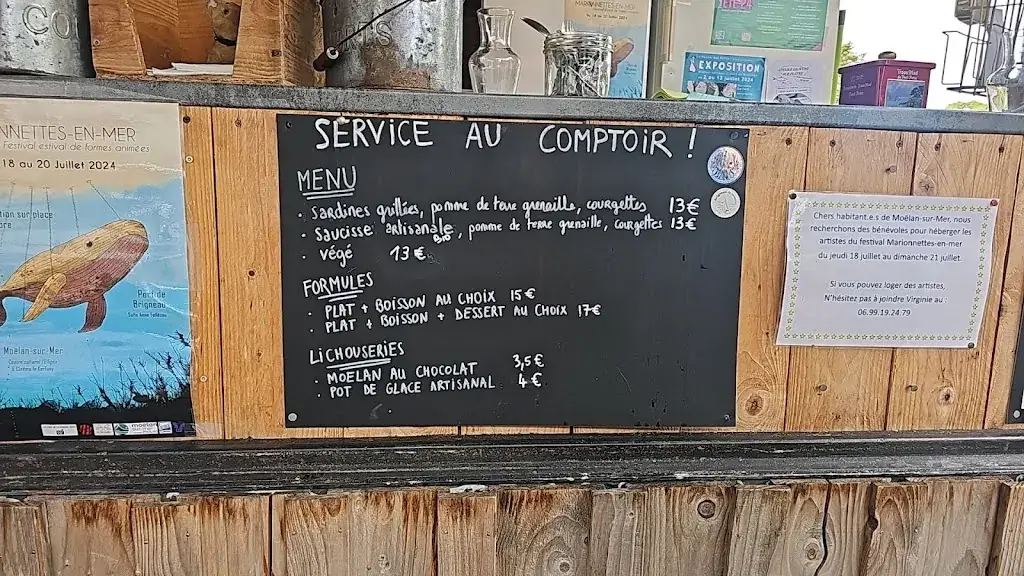 CO
IS
MARIONNETTES-EN-MER
18 au 20 Juillet 2024
EXPOSITION
NNETTES-EN-MER
Festival estival de formes animées
18 au 20 Juillet 2024
tion sur place
Port de
Brigneau
Moëlan-sur-Mer
SERVICE AU COMPTOIR !
MENU
• Sardines grillées, pomme de terre grenaille, courgettes 13€
• Saucisse artisanale, pomme de terre grenaille, courgettes 13€
BIO
• végé 13€
FORMULES
• PLAT + BOISSON AU CHOIX 15€
• PLAT + BOISSON + DESSERT AU CHOIX 17€
LICHOUSERIES
• MOELAN AU CHOCOLAT 3,5€
• POT DE GLACE ARTISANAL 4€
Chers habitant.e.s de Moëlan-sur-Mer, nous
recherchons des bénévoles pour héberger les
artistes du festival Marionnettes-en-mer
du jeudi 18 juillet au dimanche 21 juillet.
Si vous pouvez loger des artistes,
N'hésitez pas à joindre Virginie au :
06.99.19.24.79